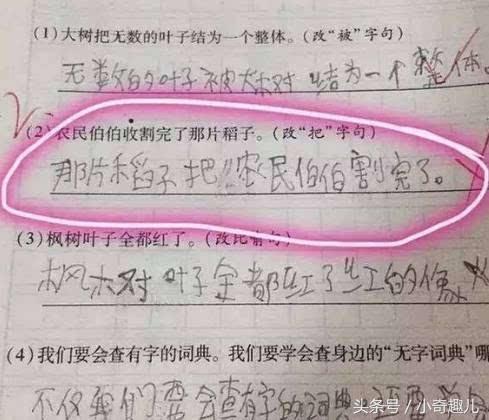 (1)大树把无数的叶子结为一个整体。(改“被”字句)
无数的叶子被大树结为一个整体。
(2)农民伯伯收割完了那片稻子。(改“把”字句)
那片稻子把农民伯伯割完了。
(3)枫树叶子全都红了。(改比喻句)
枫树叶子全都红了红的像
(4)我们要会查有字的词典。我们要学会查身边的“无字词典”哪
不仅我们要会查有字的词典
头条号／小奇趣儿